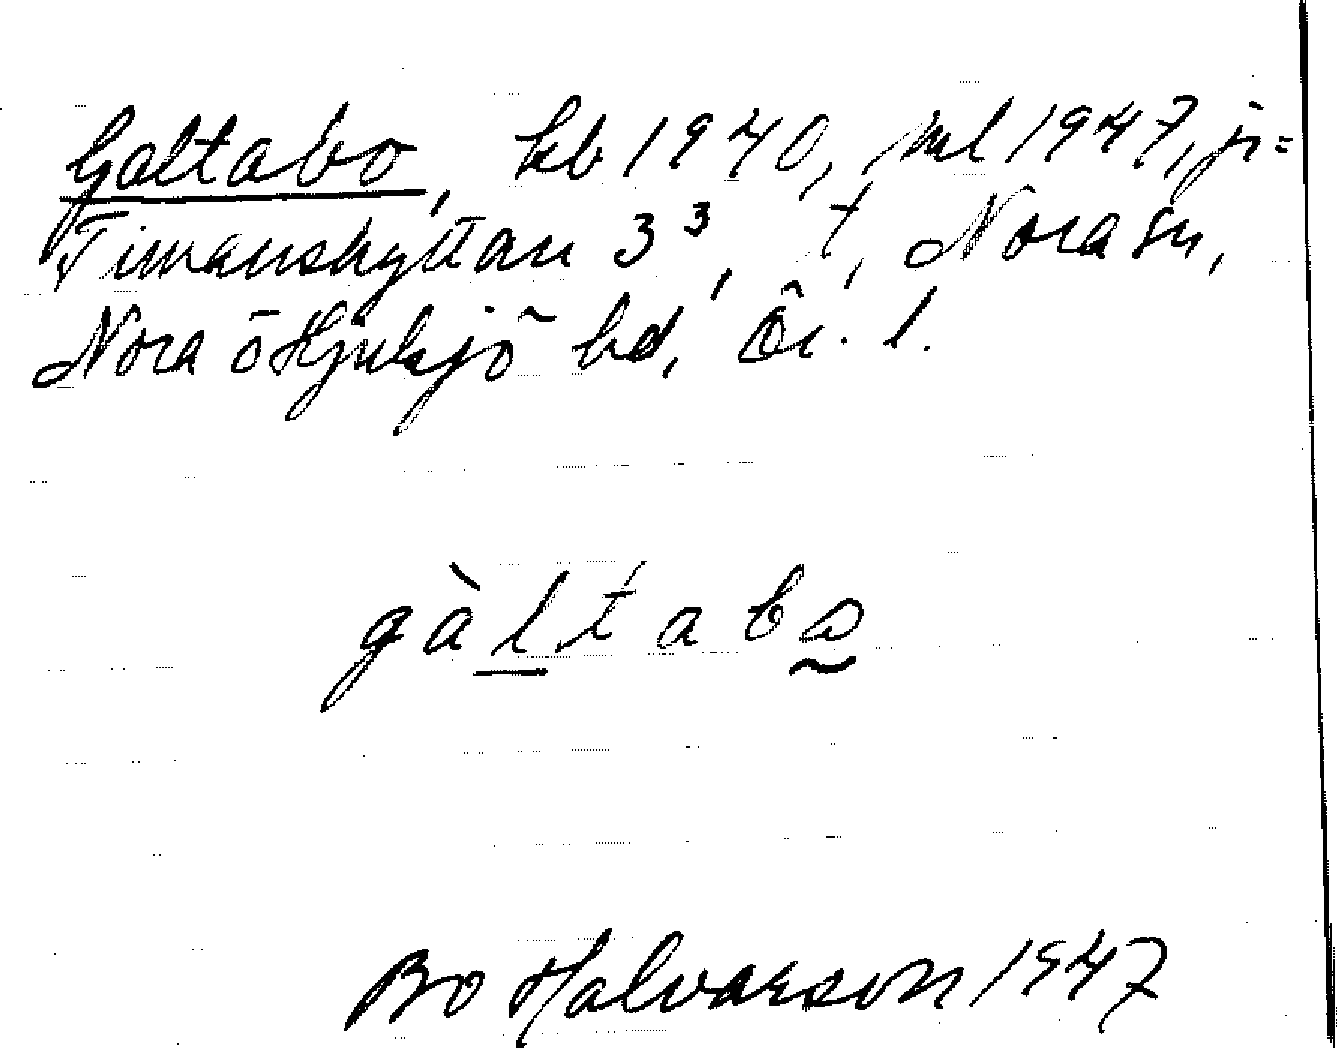 Galtabo, kb 1940, ml 1947, ji=
Timanshyttan 3³, t, Nora sn,
Nora o Hjulsjö bd, Ör. l.
gàltabo
Bo Halvarson 1947